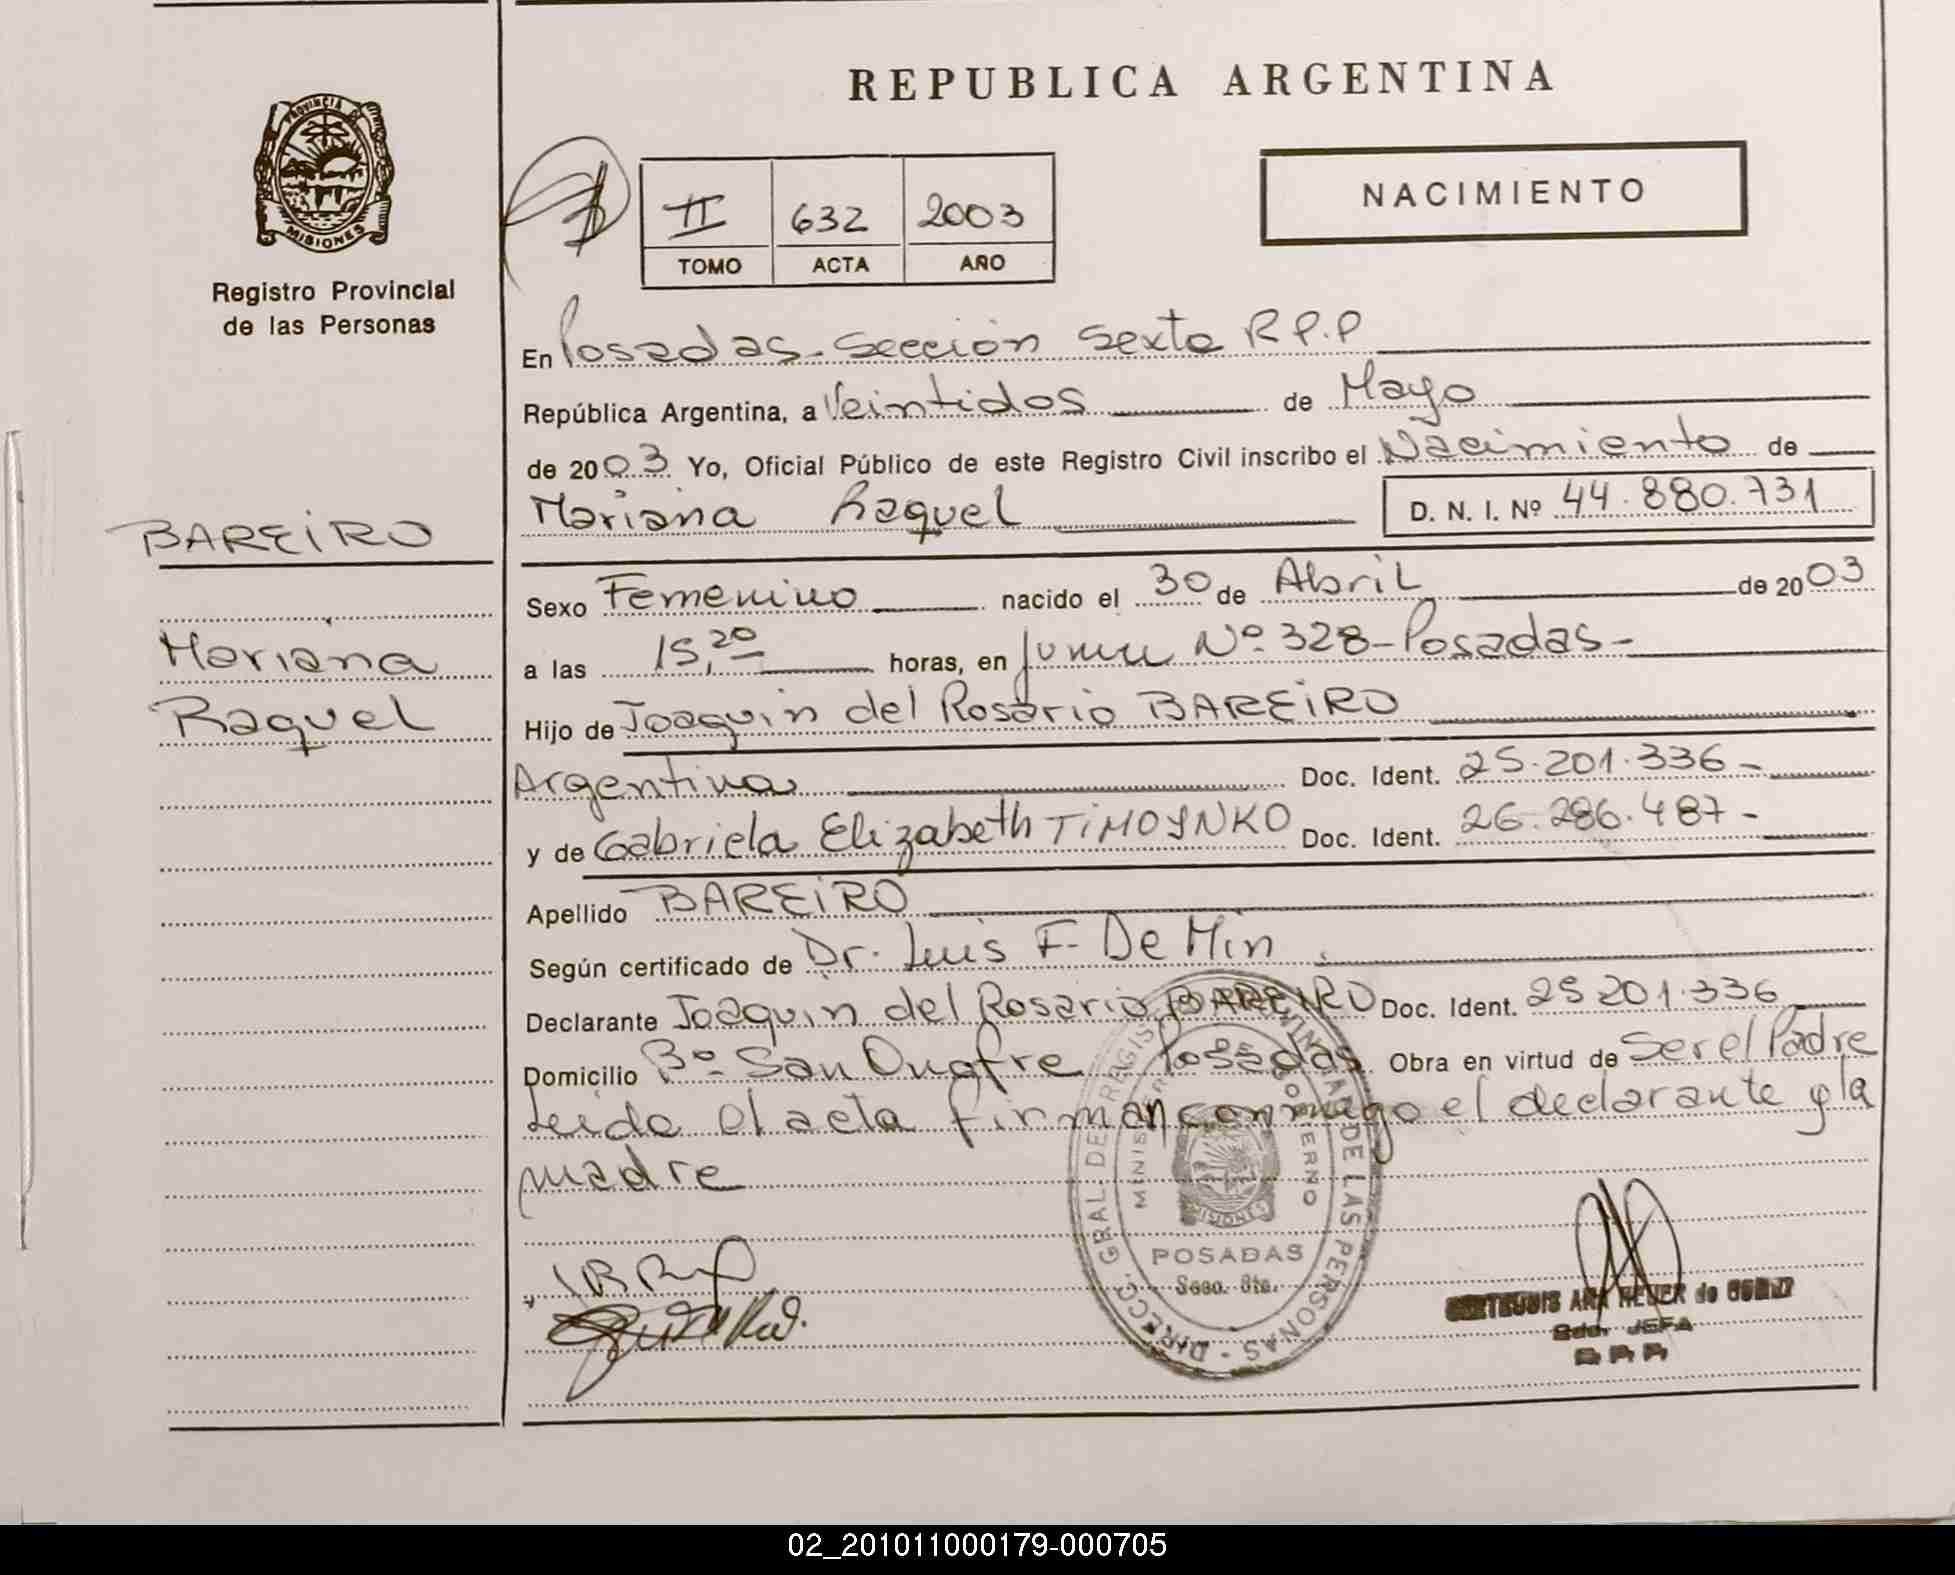 REPUBLICA ARGENTINA
PROVINCIA DE
MISIONES
Registro Provincial
de las Personas
II 632 2003
TOMO ACTA AÑO
NACIMIENTO
En Posadas - Sección Sexta R.P.P
República Argentina, a Veintidos de Mayo
de 2003 Yo, Oficial Público de este Registro Civil inscribo el Nacimiento de
Mariana Raquel D. N. I. Nº 44.880.731
BAREIRO
Mariana
Raquel
Sexo Femenino nacido el 30 de Abril de 2003
a las 15,20 horas, en Junin Nº 328 - Posadas -
Hijo de Joaquin del Rosario BAREIRO
Argentina Doc. Ident. 25.201.336 -
y de Gabriela Elizabeth TIMOYNKO Doc. Ident. 26.286.487 -
Apellido BAREIRO
Según certificado de Dr. Luis F. De Min
Declarante Joaquin del Rosario BAREIRO Doc. Ident. 25 201.336
Domicilio Bº San Onofre Posadas Obra en virtud de Ser el Padre
Leida el acta firman conmigo el declarante y la
madre
DIRECC. GBAL. DE REGIST DE LAS PERSONAS
MINISTERIO DE GOBIERNO
MISIONES
POSADAS
Secc. 6ta.
ANA de
JEFA
R P P
02_201011000179-000705